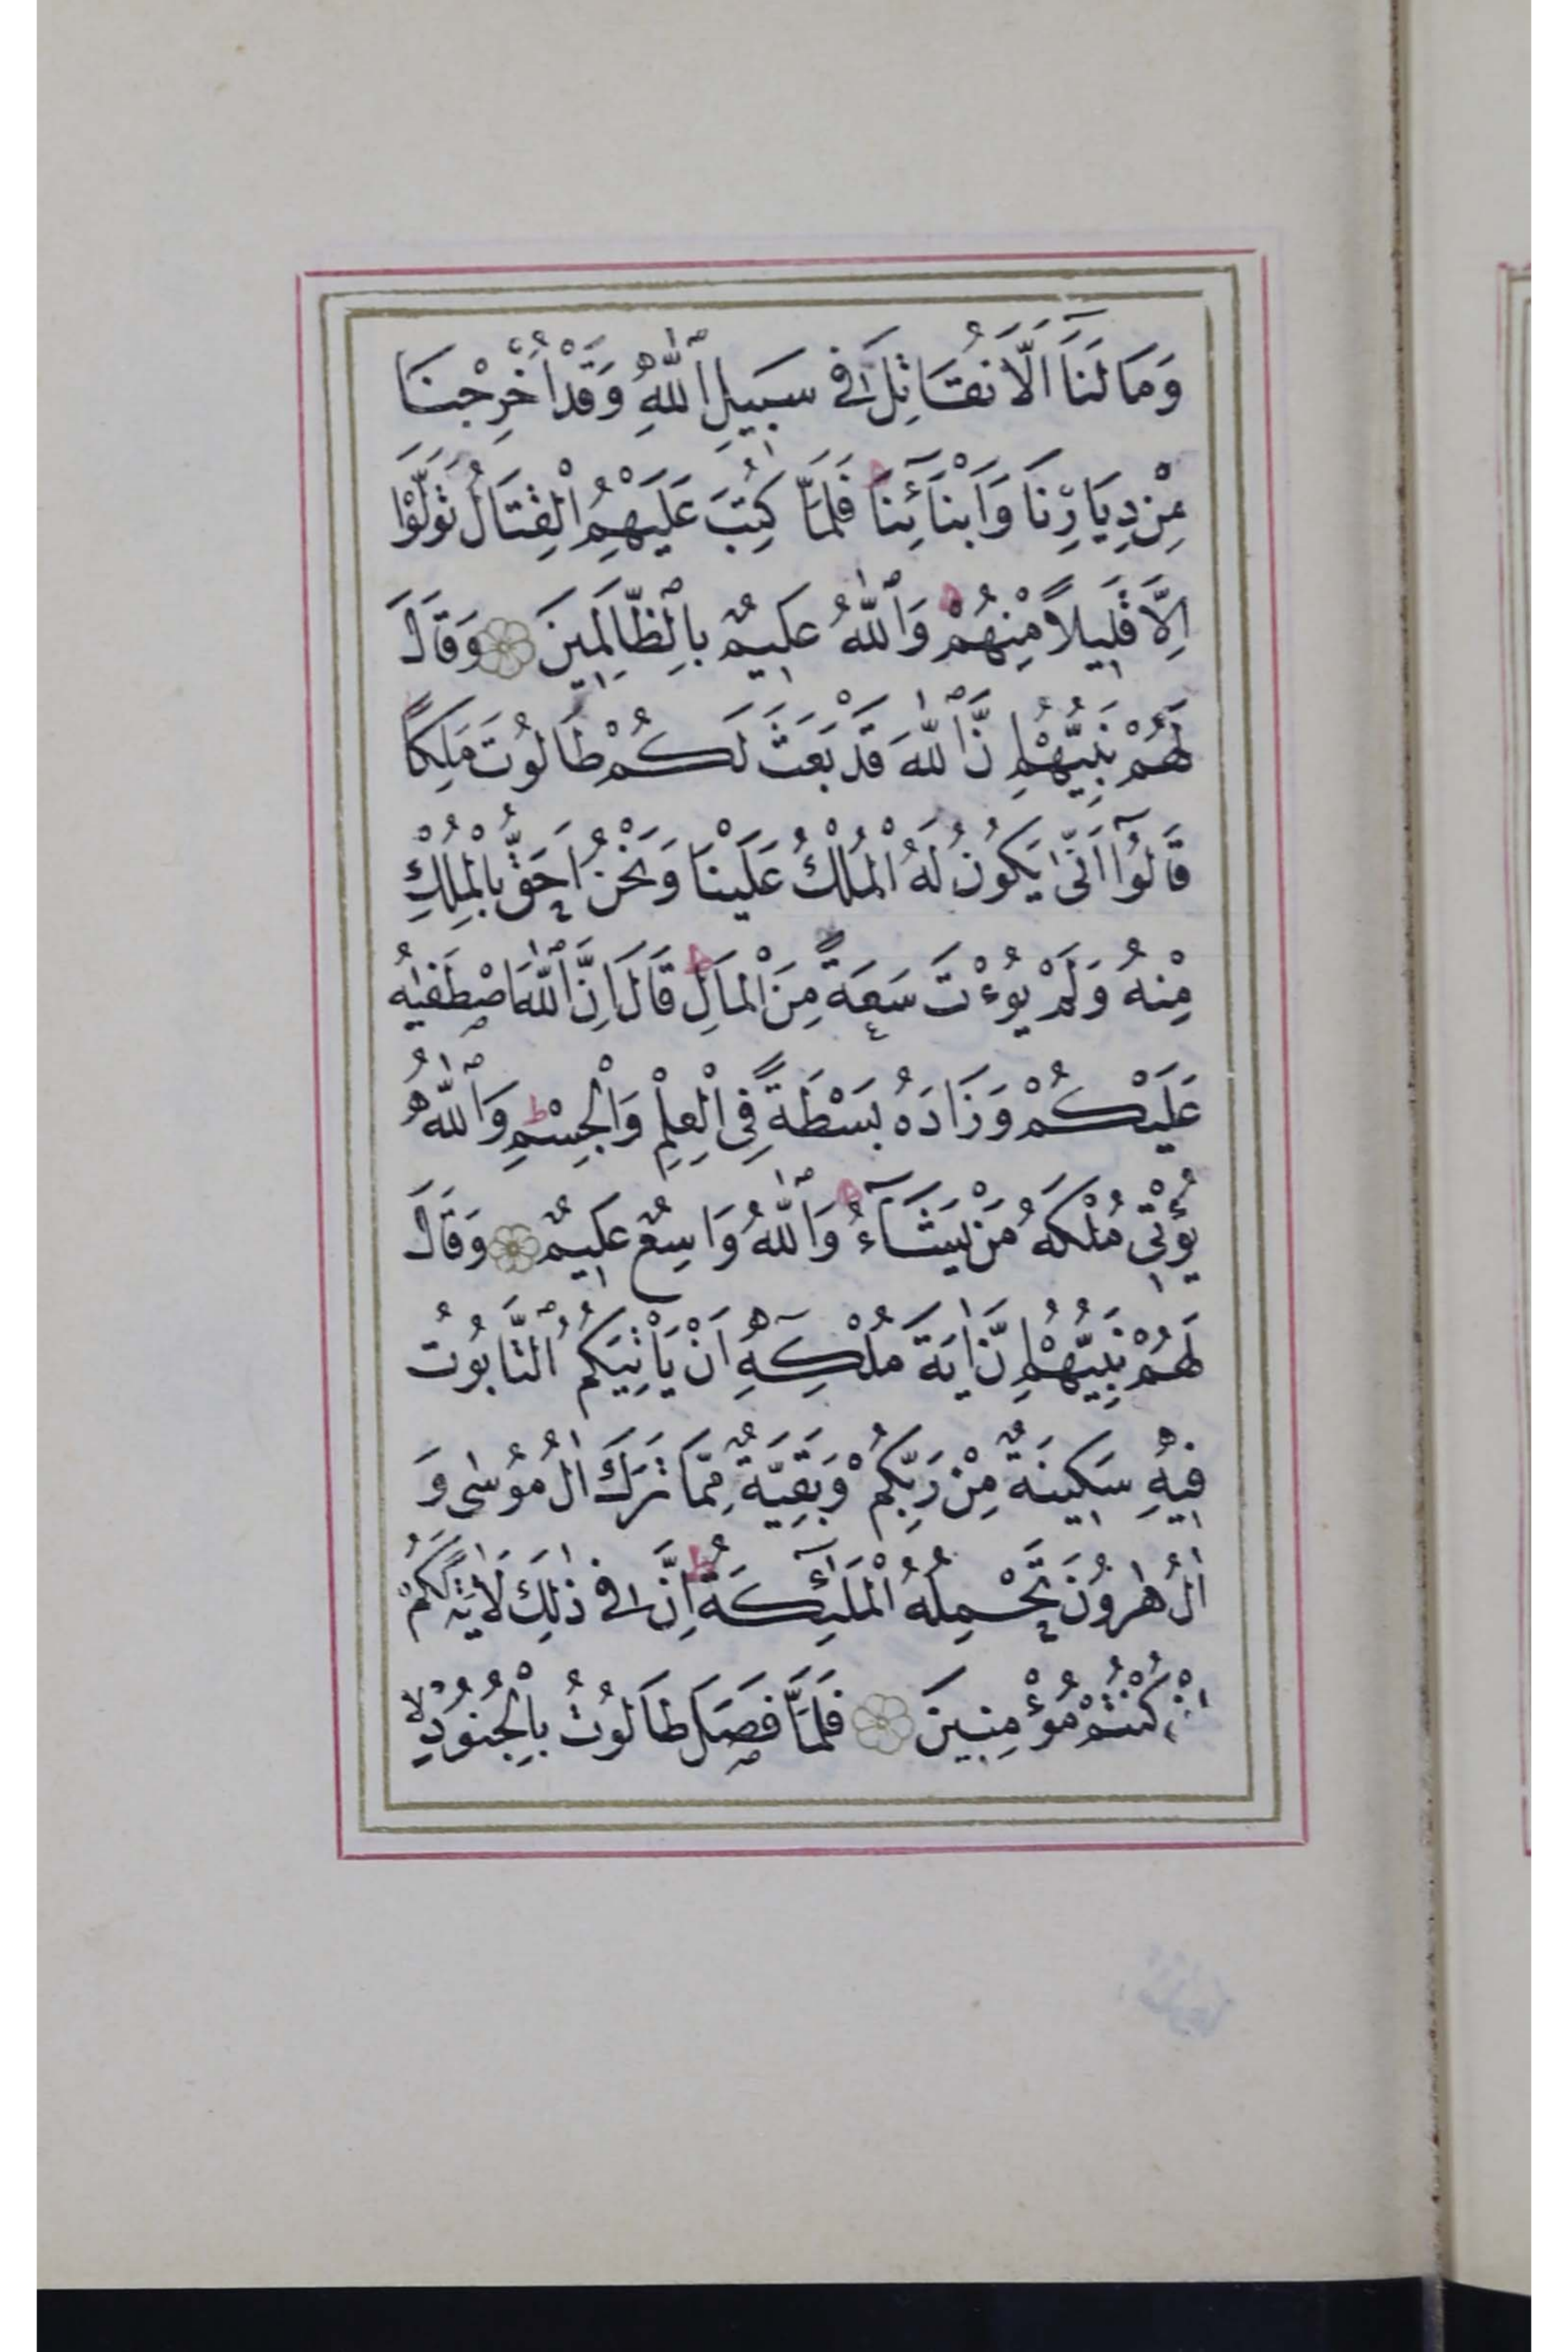 وَمَا لَنَآ اَلَّا نُقَاتِلَ فِى سَبِيلِ ٱللّٰهِ وَقَدْ اُخْرِجْنَا
مِنْ دِيَارِنَا وَاَبْنَآئِنَا ط فَلَمَّا كُتِبَ عَلَيْهِمُ الْقِتَالُ تَوَلَّوْا
اِلَّا قَلِيلًا مِنْهُمْ ط وَٱللّٰهُ عَلِيمٌ بِٱلظَّالِمِينَ وَقَالَ
لَهُمْ نَبِيُّهُمْ اِنَّ ٱللّٰهَ قَدْ بَعَثَ لَكُمْ طَالُوتَ مَلِكًا
قَالُوٓا اَنّٰى يَكُونُ لَهُ الْمُلْكُ عَلَيْنَا وَنَحْنُ اَحَقُّ بِالْمُلْكِ
مِنْهُ وَلَمْ يُوءْتَ سَعَةً مِنَ الْمَالِ ط قَالَ اِنَّ ٱللّٰهَ اصْطَفٰيهُ
عَلَيْكُمْ وَزَادَهُ بَسْطَةً فِى الْعِلْمِ وَالْجِسْمِ ط وَٱللّٰهُ
يُؤْتِى مُلْكَهُ مَنْ يَشَآءُ ط وَٱللّٰهُ وَاسِعٌ عَلِيمٌ وَقَالَ
لَهُمْ نَبِيُّهُمْ اِنَّ اٰيَةَ مُلْكِهِٓ اَنْ يَاْتِيَكُمُ ٱلتَّابُوتُ
فِيهِ سَكِينَةٌ مِنْ رَبِّكُمْ وَبَقِيَّةٌ مِمَّا تَرَكَ اٰلُ مُوسٰى وَ
اٰلُ هٰرُونَ تَحْمِلُهُ الْمَلٰٓئِكَةُ ط اِنَّ فِى ذٰلِكَ لَاٰيَةً لَكُمْ
اِنْ كُنْتُمْ مُؤْمِنِينَ فَلَمَّا فَصَلَ طَالُوتُ بِالْجُنُودِ لا